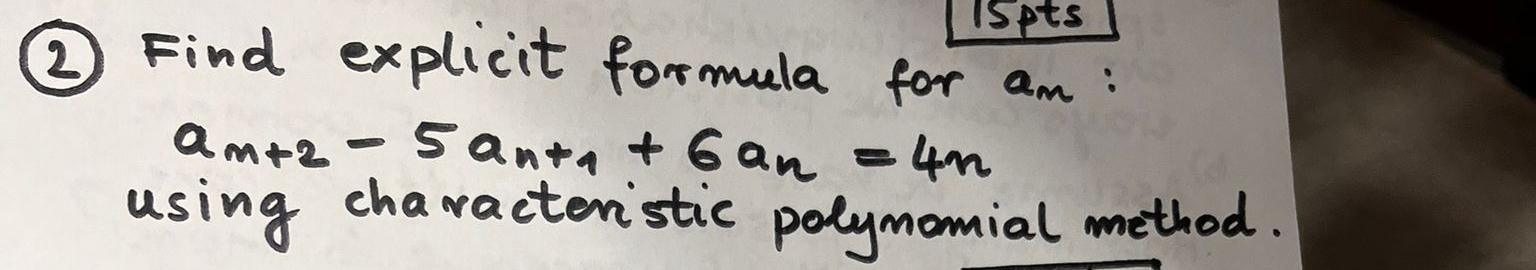 15pts
② Find explicit formula for aₙ :
aₙ₊₂ - 5aₙ₊₁ + 6aₙ = 4n
using characteristic polynomial method.